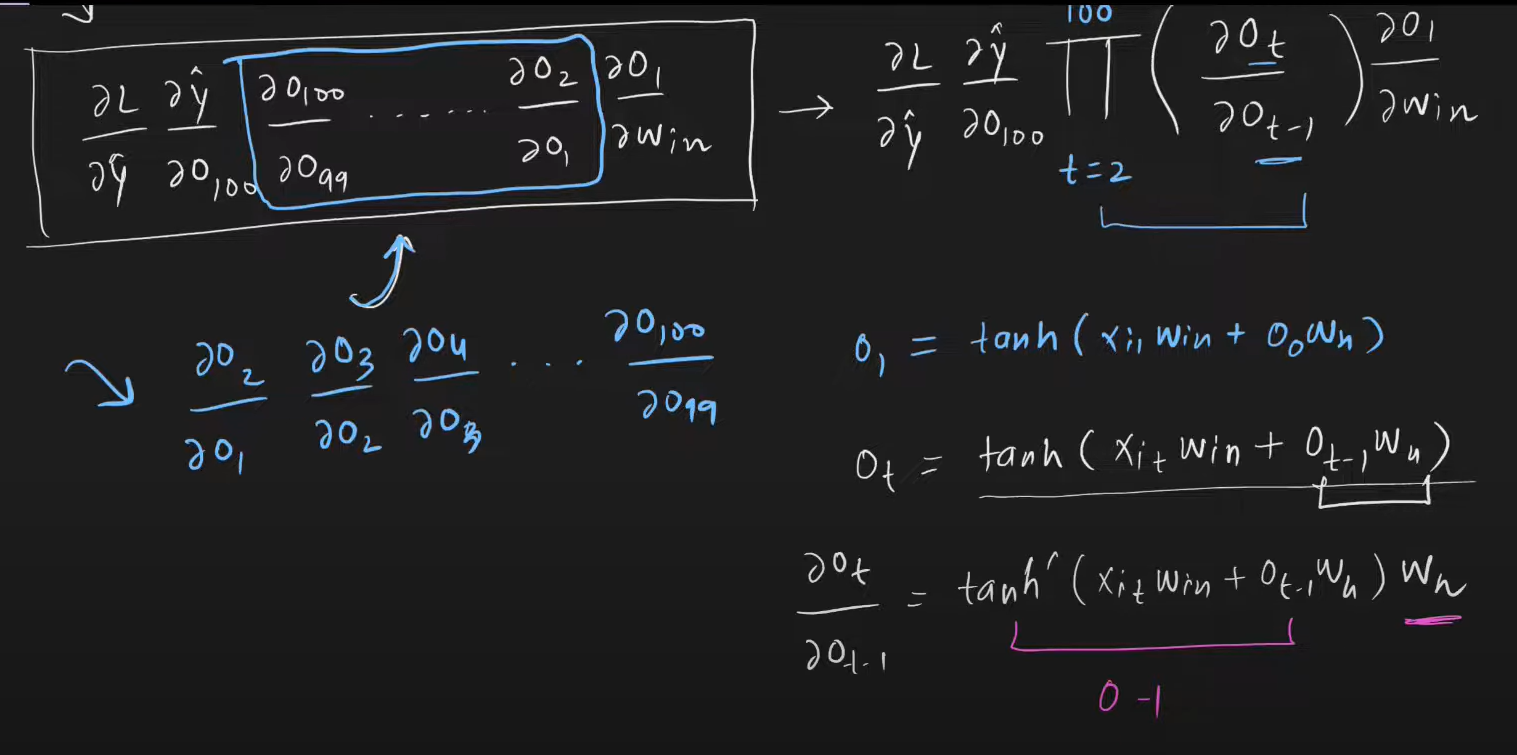 ∂L/∂ŷ ∂ŷ/∂O₁₀₀ ∂O₁₀₀/∂O₉₉ ....... ∂O₂/∂O₁ ∂O₁/∂Win → ∂L/∂ŷ ∂ŷ/∂O₁₀₀ ∏ (t=2, 100) (∂Oₜ/∂Oₜ₋₁) ∂O₁/∂Win
∂O₂/∂O₁ ∂O₃/∂O₂ ∂O₄/∂O₃ ... ∂O₁₀₀/∂O₉₉
O₁ = tanh(xᵢ₁ Win + O₀Wₕ)
Oₜ = tanh(xᵢₜ Win + Oₜ₋₁Wₕ)
∂Oₜ/∂Oₜ₋₁ = tanh′(xᵢₜ Win + Oₜ₋₁Wₕ) Wₕ
0 - 1